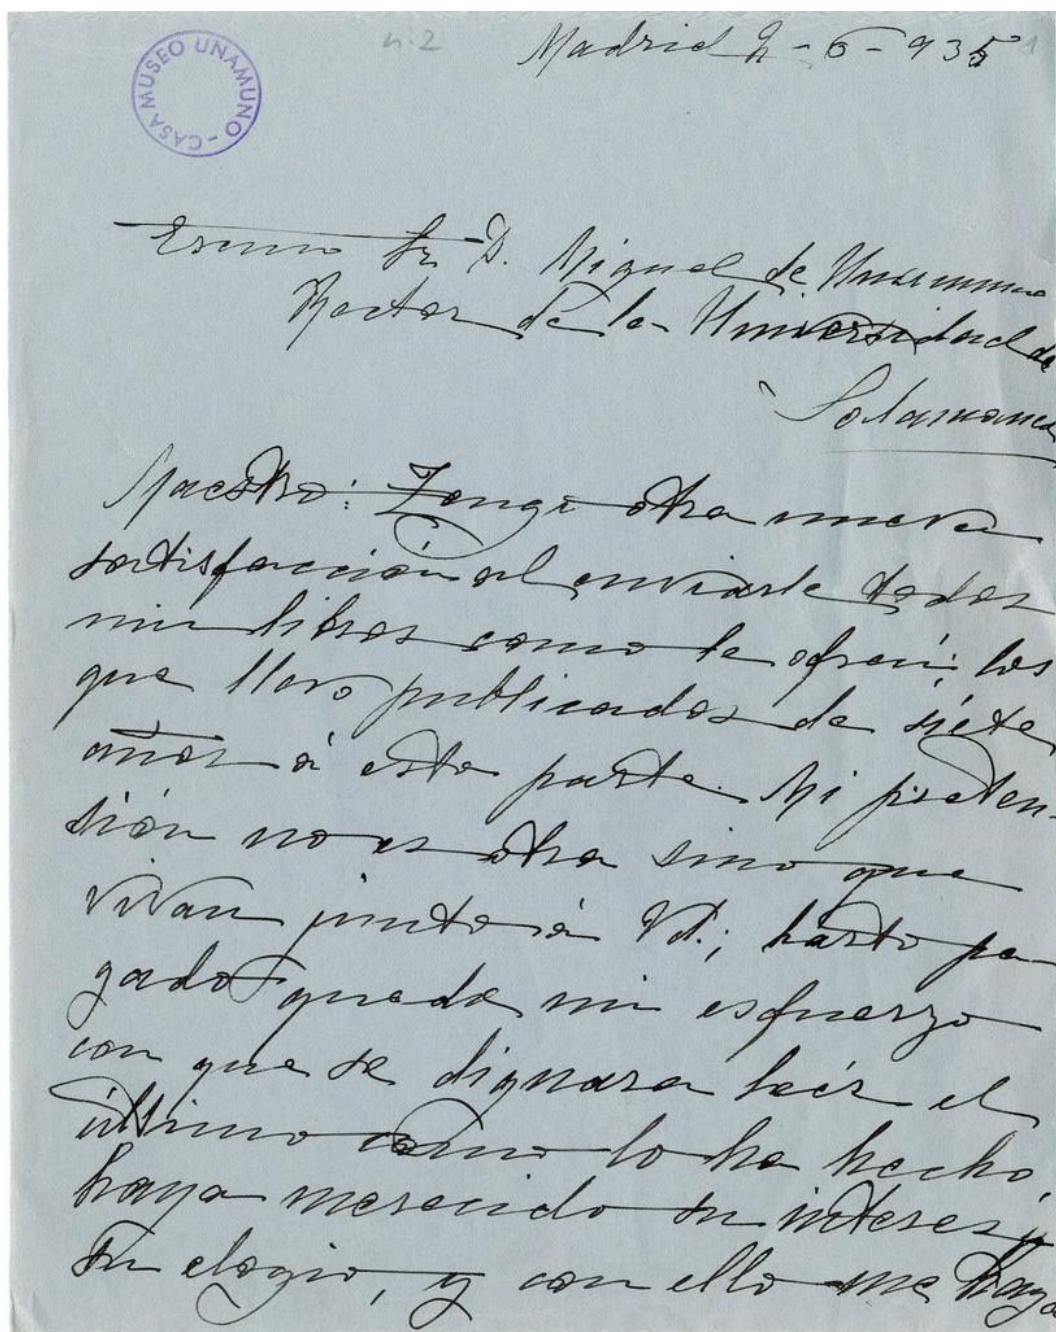 CASA MUSEO UNAMUNO
n.2
Madrid 2-6-935
1
Excmo Sr D. Miguel de Unamuno
Rector de la Universidad de
Salamanca
Maestro: Tengo otra nueva
satisfacción al enviarle todos
mis libros como le ofrecí; los
que llevo publicados de siete
años á esta parte. Mi preten-
sión no es otra sino que
vivan junto á Vd.; harto pa-
gado queda mi esfuerzo
con que se dignara leér el
último como lo ha hecho,
haya merecido su interes y
su elogio, y con ello me haya